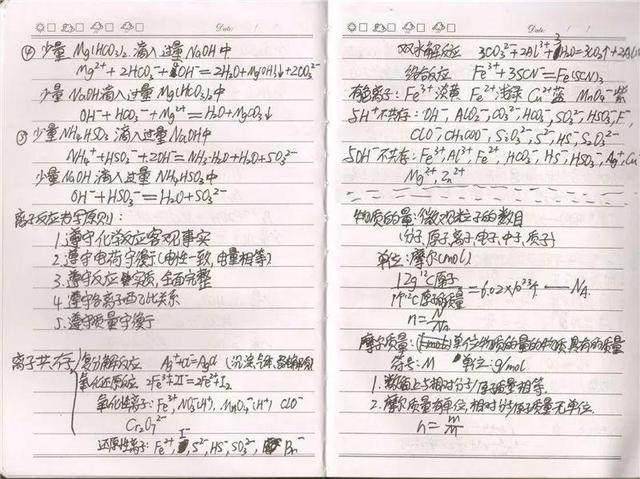 ④少量Mg(HCO₃)₂滴入过量NaOH中
Mg²⁺+2HCO₃⁻+4OH⁻=2H₂O+Mg(OH)₂↓+2CO₃²⁻
少量NaOH滴入过量Mg(HCO₃)₂中
OH⁻+HCO₃⁻+Mg²⁺=H₂O+MgCO₃↓
⑤少量NH₄HSO₃滴入过量NaOH中
NH₄⁺+HSO₃⁻+2OH⁻=NH₃·H₂O+H₂O+SO₃²⁻
少量NaOH滴入过量NH₄HSO₃中
OH⁻+HSO₃⁻=H₂O+SO₃²⁻
离子反应方程原则:
1.遵守化学反应客观事实
2.遵守电荷守衡(电性一致,电量相等)
3.遵守反应实质,全面完整
4.遵守各离子配比关系
5.遵守质量守衡
离子共存 复分解反应 Ag⁺+Cl⁻=AgCl (沉淀气体
氧化还原反应 2Fe³⁺+2I⁻=2Fe²⁺+I₂
氧化性离子:Fe³⁺,NO₃⁻(H⁺) MnO₄⁻(H⁺) ClO⁻
Cr₂O₇²⁻
还原性离子:Fe²⁺,I⁻,S²⁻,HS⁻,SO₃²⁻, Br⁻
Date: / /
双水解反应 3CO₃²⁻+2Al³⁺+3H₂O=3CO₂↑+2Al(O
络合反应 Fe³⁺+3SCN⁻=Fe(SCN)₃
有色离子:Fe³⁺淡黄 Fe²⁺浅绿 Cu²⁺蓝 MnO₄⁻紫
与H⁺不共存:OH⁻,AlO₂⁻,CO₃²⁻,HCO₃⁻,SO₃²⁻,HSO₃⁻,F⁻
ClO⁻,CH₃COO⁻,SiO₃²⁻,S²⁻,HS⁻,S₂O₃²⁻
与OH⁻不共存:Fe³⁺,Al³⁺,Fe²⁺,HCO₃⁻,HS⁻,HSO₃⁻,Ag⁺,Cu
Mg²⁺,Zn²⁺
物质的量:微观粒子的数目
(分子,原子,离子,电子,中子,质子)
单位:摩尔(mol)
12g¹²C原子
1个¹²C原子质量 =6.02×10²³个 ← Nᴀ
n=N/Nᴀ
摩尔质量:单位物质的量的物质具有的质量
符号:M 单位:g/mol
1.数值上与相对分子/原子质量相等.
2.摩尔质量有单位,相对分子/原子质量无单位.
n=m/M